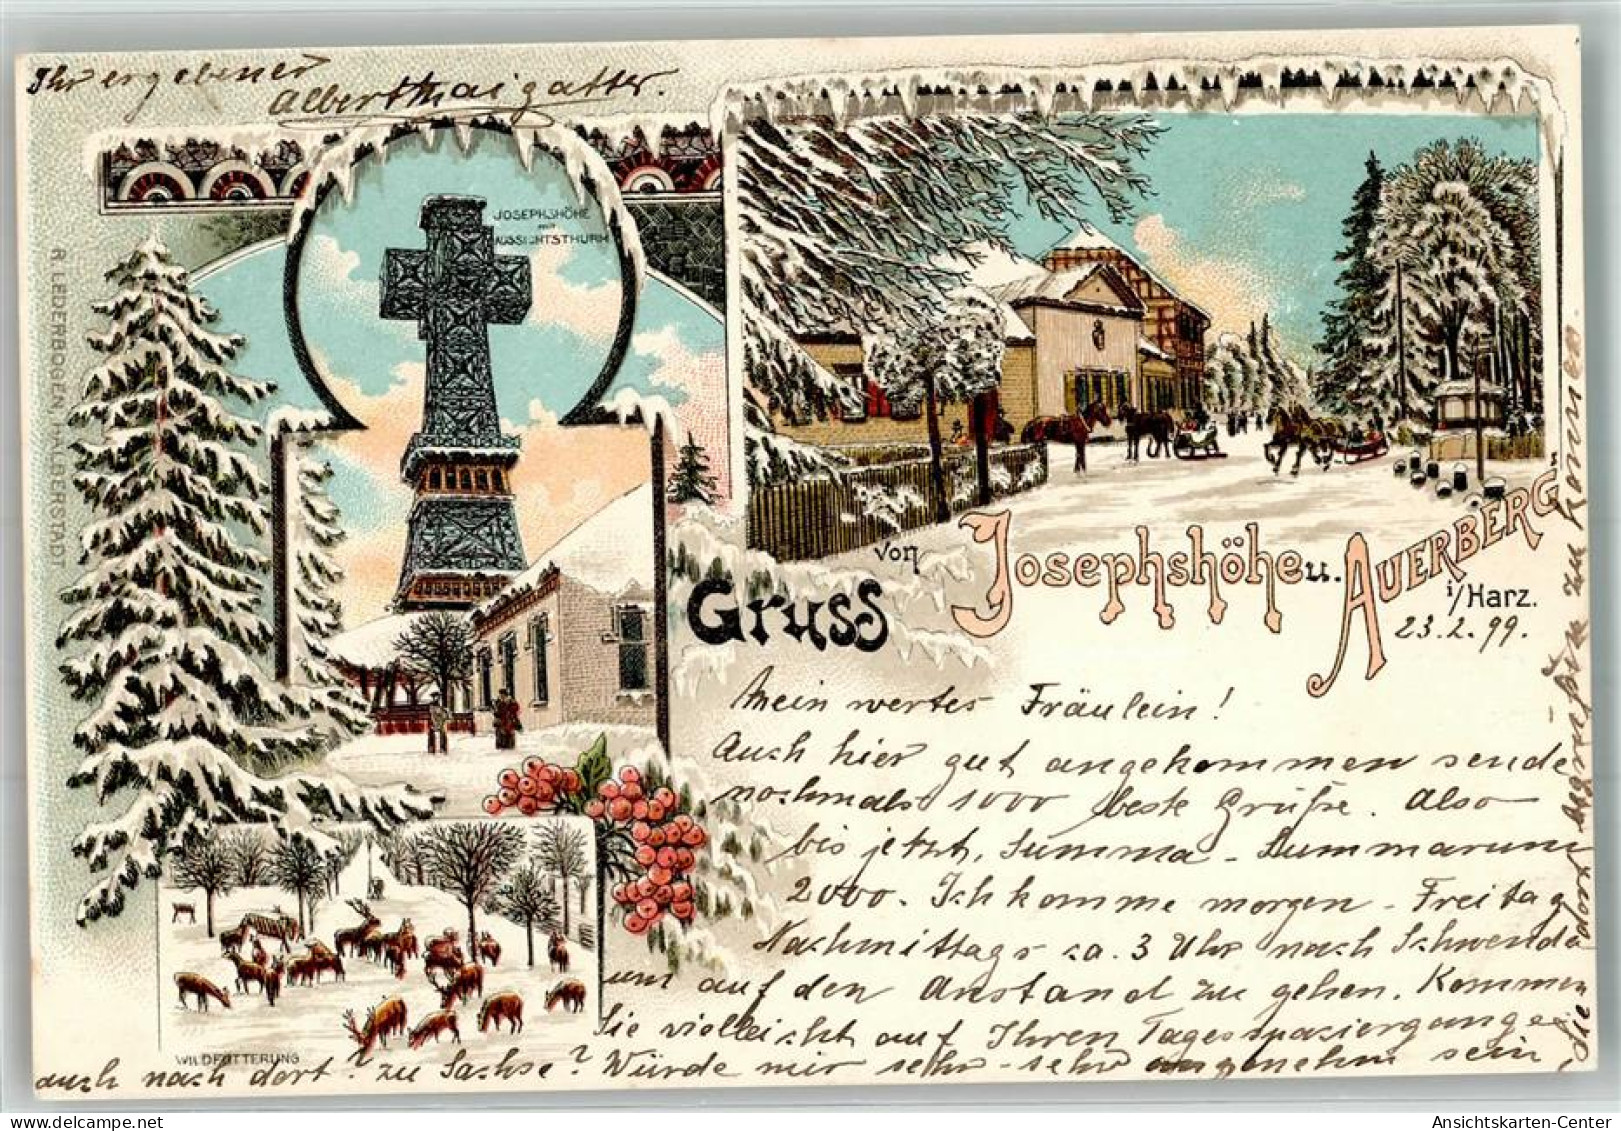 Ihr ergebener
JOSEPHSHÖHE
MIT
AUSSICHTSTHURM
R. LEDERBOGEN, HALBERSTADT
von Josephshöhe u. AUERBERG
Gruss
i/Harz.
23.2.99.
Mein wertes Fräulein!
Auch hier gut angekommen sende
nochmals 1000 beste Grüße. Also
bis jetzt, Summa-Summarum
2000. Ich komme morgen - Freitag
Nachmittags ca. 3 Uhr nach Schwenda
um auf den Anstand zu gehen. Kommen
Sie vielleicht auf Ihren Tagesspaziergange
auch nach dort? zu Sachse? Würde mir sehr-sehr angenehm sein
Sie dort zu kommen.
WILDFÜTTERUNG
Ansichtskarten-Center